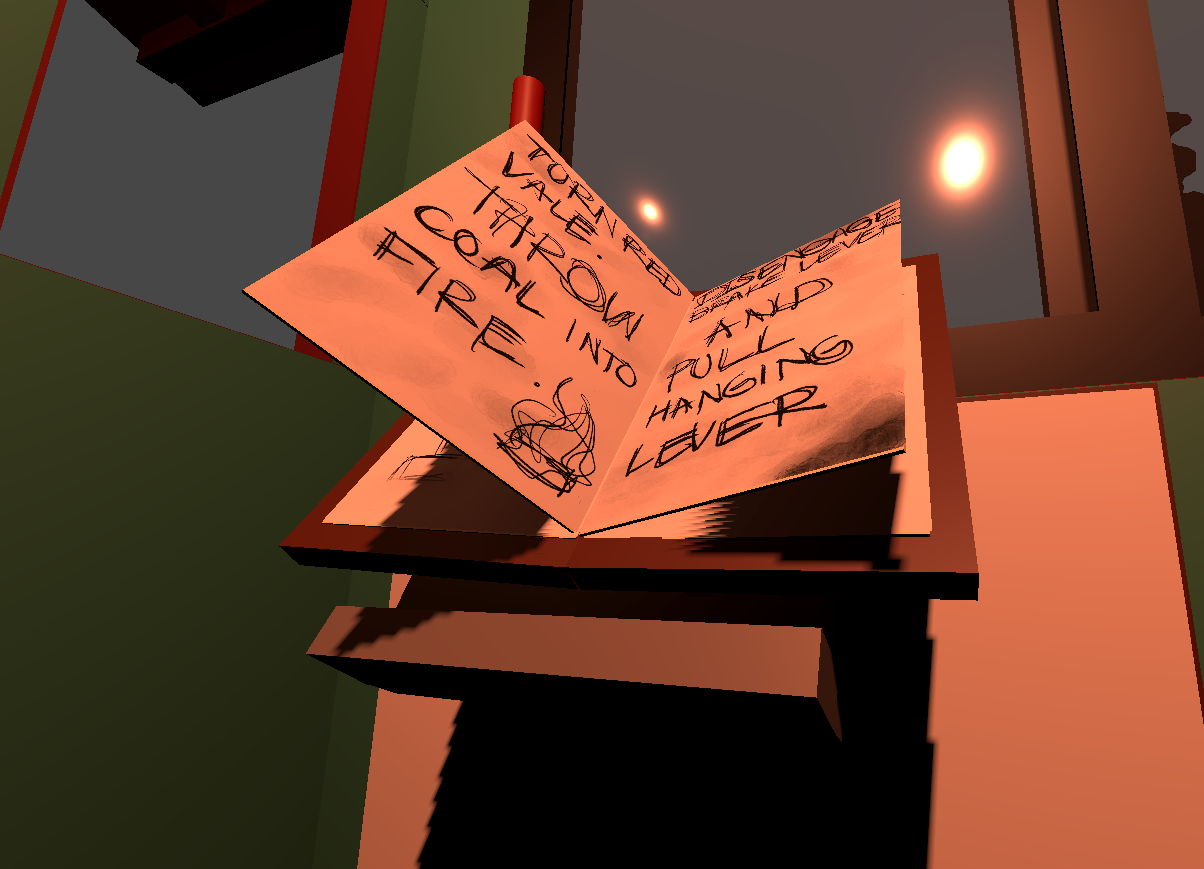 TURN RED
VALE.
THROW
COAL INTO
FIRE.
DISENGAGE
BRAKE LEVER
AND
PULL
HANGING
LEVER